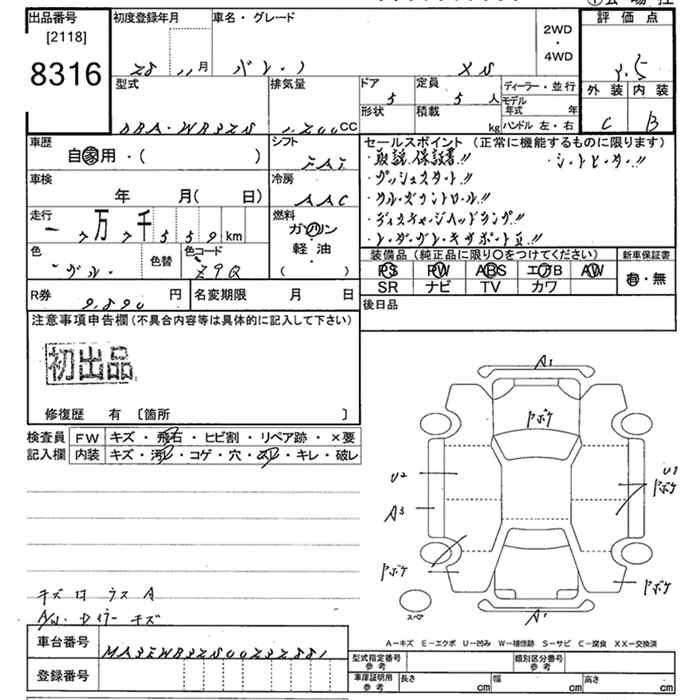 出品番号 初度登録年月 車名・グレード 評価点
[2118]
8316
28 11月 バレーノ XS
2WD
・
4WD
外装 内装
C B
型式 排気量 ドア 定員 ディーラー・並行
5 5人 モデル年式 年
形状 積載 kg ハンドル 左・右
DBA-WB32S 1,200CC
車歴 シフト セールスポイント (正常に機能するものに限ります)
自家用・( ) FAT
・取説.保証書!! ・シートヒーター!!
車検 冷房 ・プッシュスタート!!
年 月( 日) AAC ・クルーズコントロール!!
走行 燃料 ・ディスチャージヘッドランプ!!
万 千 559 km ガソリン
・レーダーブレーキサポートⅡ!!
軽・油
( )
色 色替 色コード
ブルー Z9Q
装備品 (純正品に限り○をつけてください) 新車保証書
PS PW ABS エアB AW 有・無
SR ナビ TV カワ
R券 9,890円 名変期限 月 日 後日品
注意事項申告欄(不具合内容等は具体的に記入して下さい)
初出品
修復歴 有 [箇所 ]
検査員 FW キズ・飛石・ヒビ割・リペア跡・×要
記入欄 内装 キズ・汚レ・コゲ・穴・スレ・キレ・破レ
A1
ドアボケ
U2 U1
ドアボケ
A3
ドアボケ ドアボケ
スペア A1
キズ
A-キズ E-エクボ U-凹み W-補修跡 S-サビ C-腐食 XX-交換済
車台番号 MA3EWB32S00232881
登録番号
型式指定番号 参考 類別区分番号 参考
車庫証明用 参考 長さ cm 幅 cm 高さ cm